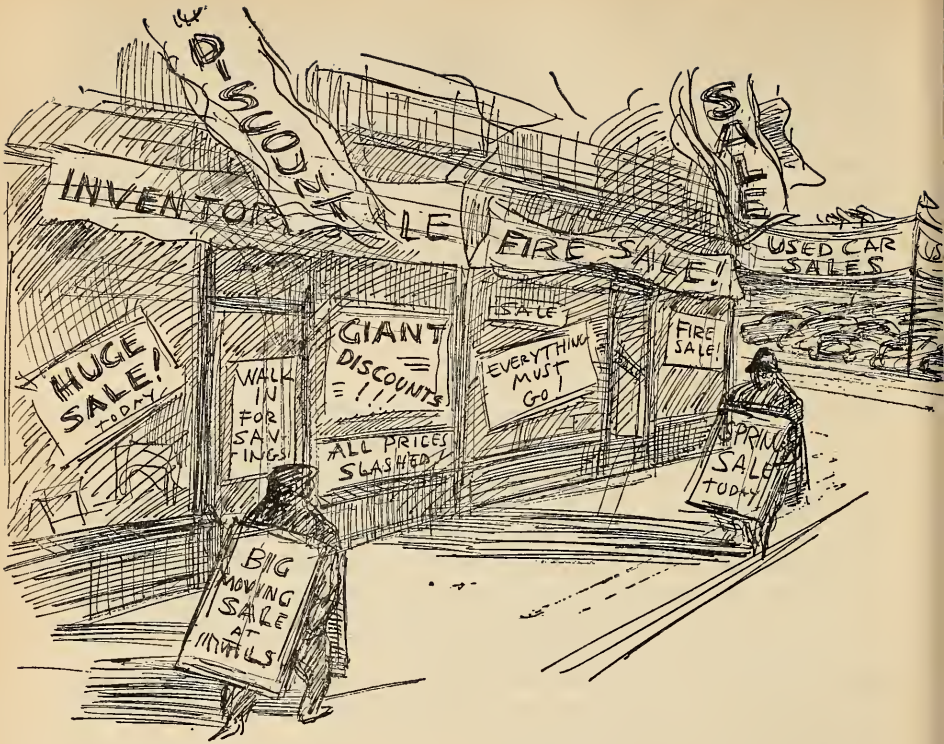 DISCOUNT
SALE
INVENTOR LE
FIRE SALE!
USED CAR
SALES
HUGE
SALE!
TODAY
WALK
IN
FOR
SAV-
INGS
GIANT
DISCOUNTS
!!!
ALL PRICES
SLASHED!
SALE
EVERYTHING
MUST
GO!
FIRE
SALE!
BIG
MOVING
SALE
AT
SPRING
SALE
TODAY